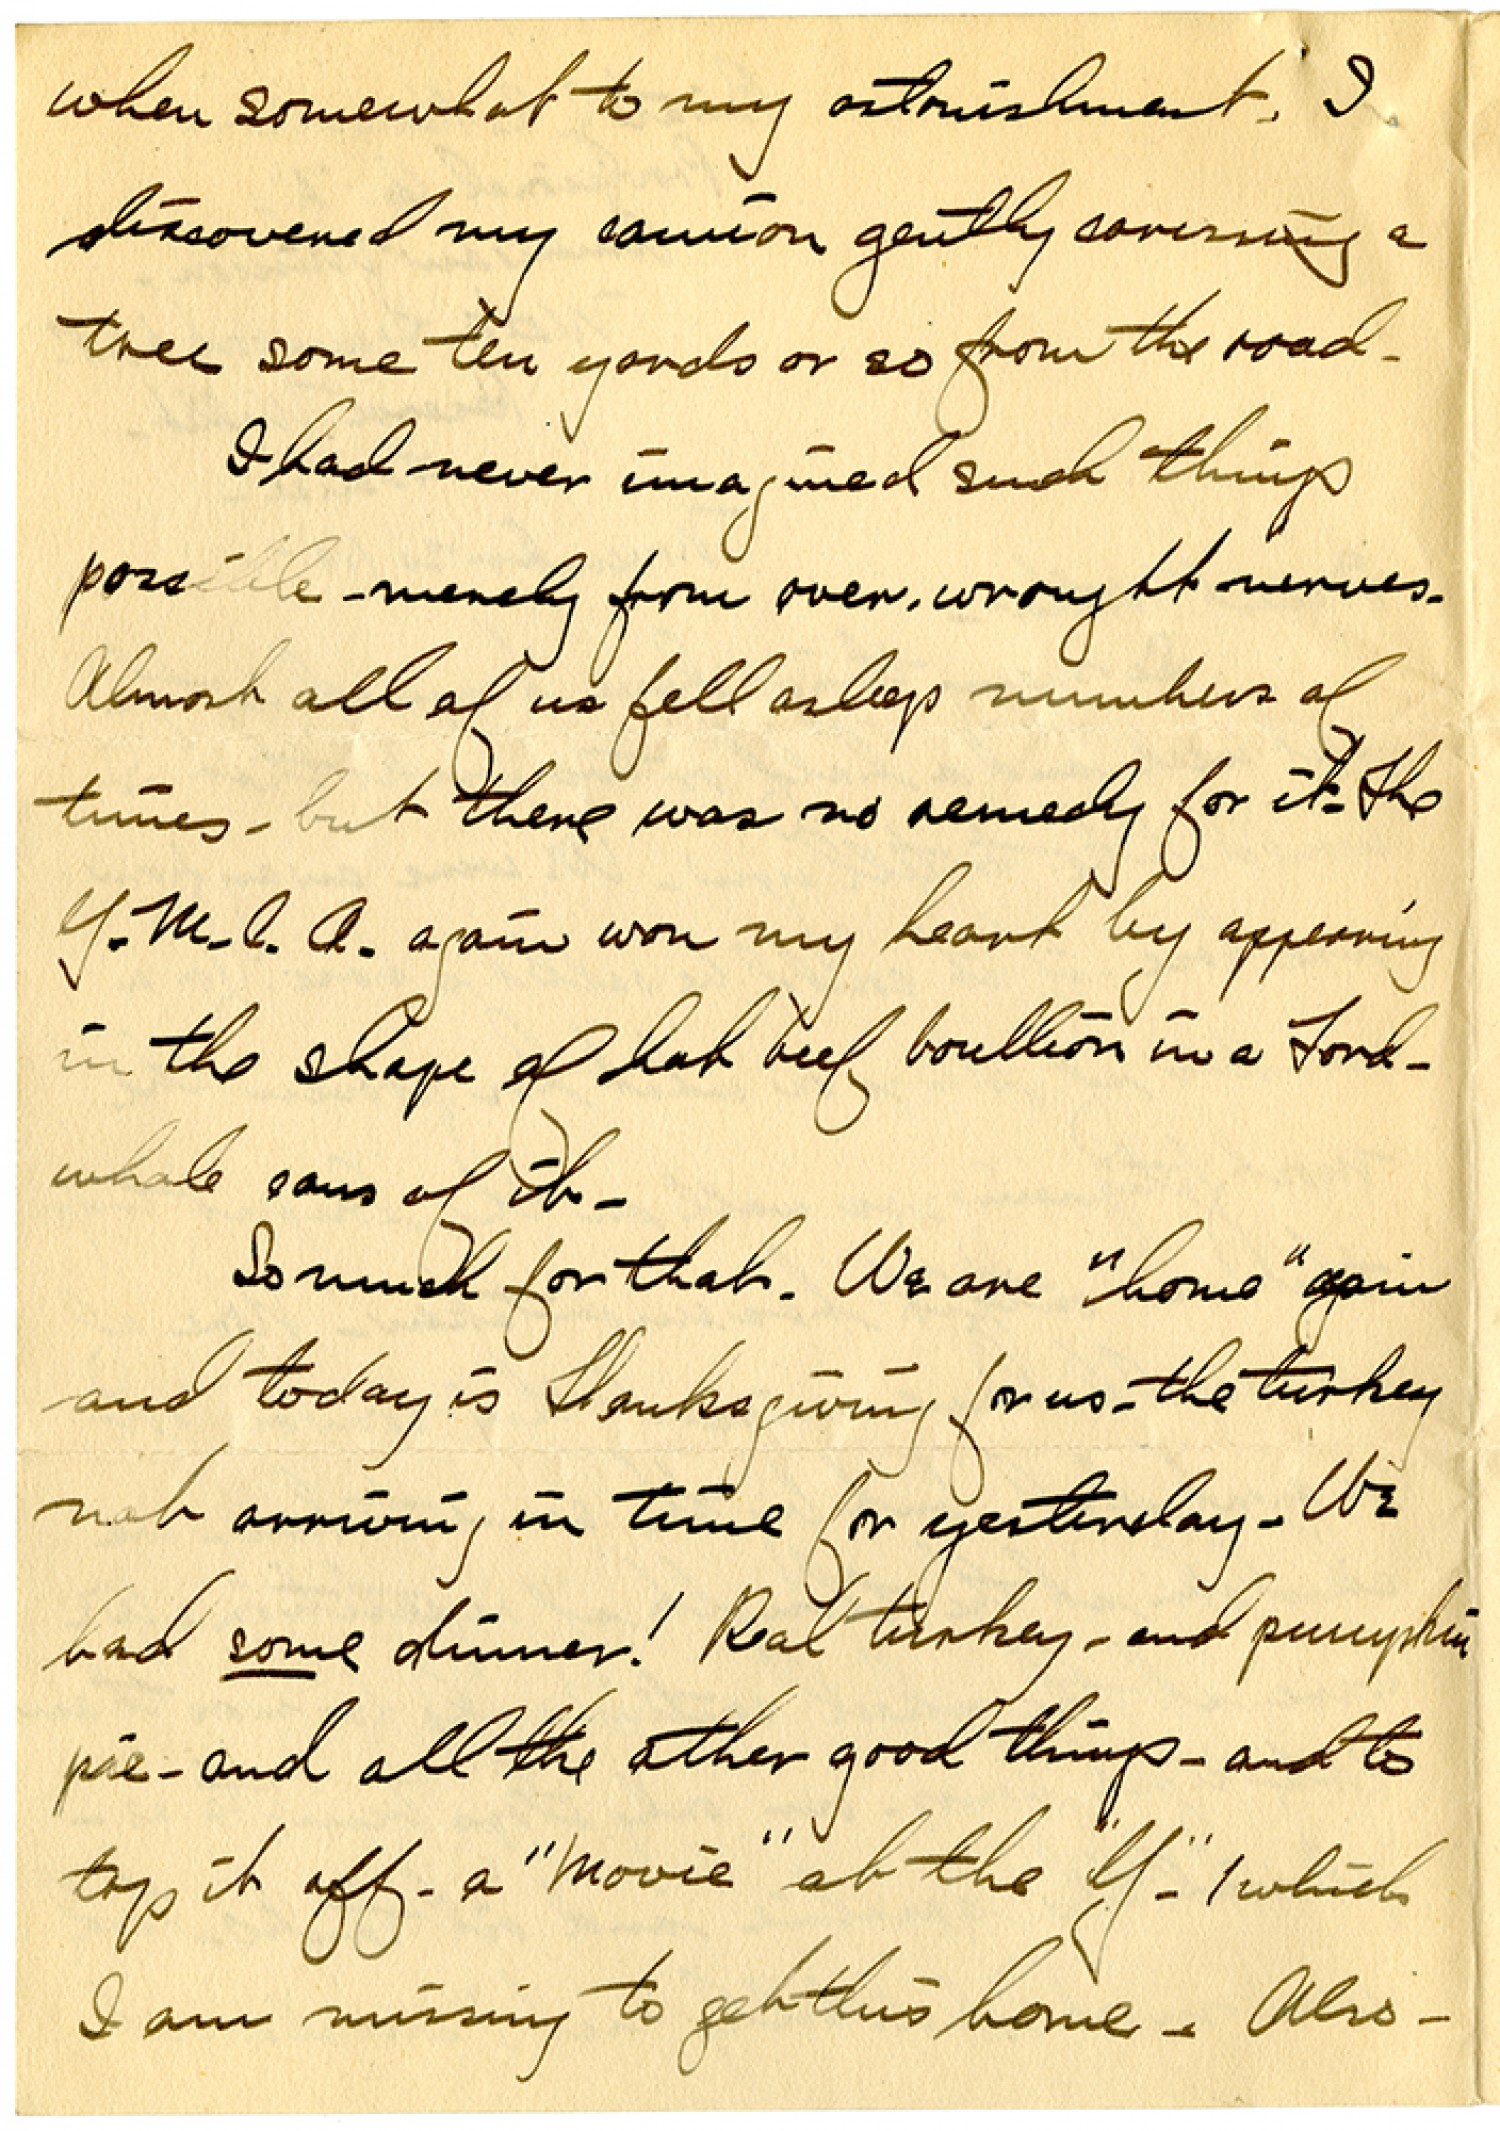 when somewhat to my astonishment. I
discovered my camion gently caressing a
tree some ten yards or so from the road-
I had never imagined such things
possible - merely from over-wrought nerves-
Almost all of us fell asleep numbers of
times - but there was no remedy for it - The
Y.M.C.A. again won my heart by appearing
in the shape of hot beef boullion in a Ford-
whole cans of it -
So much for that. We are "home" again
and today is Thanksgiving for us - the turkey
not arriving in time for yesterday - We
had some dinner! Real turkey - and pumpkin
pie - and all the other good things - and to
top it off - a "Movie" at the "Y" - (which
I am missing to get this home -. Also -